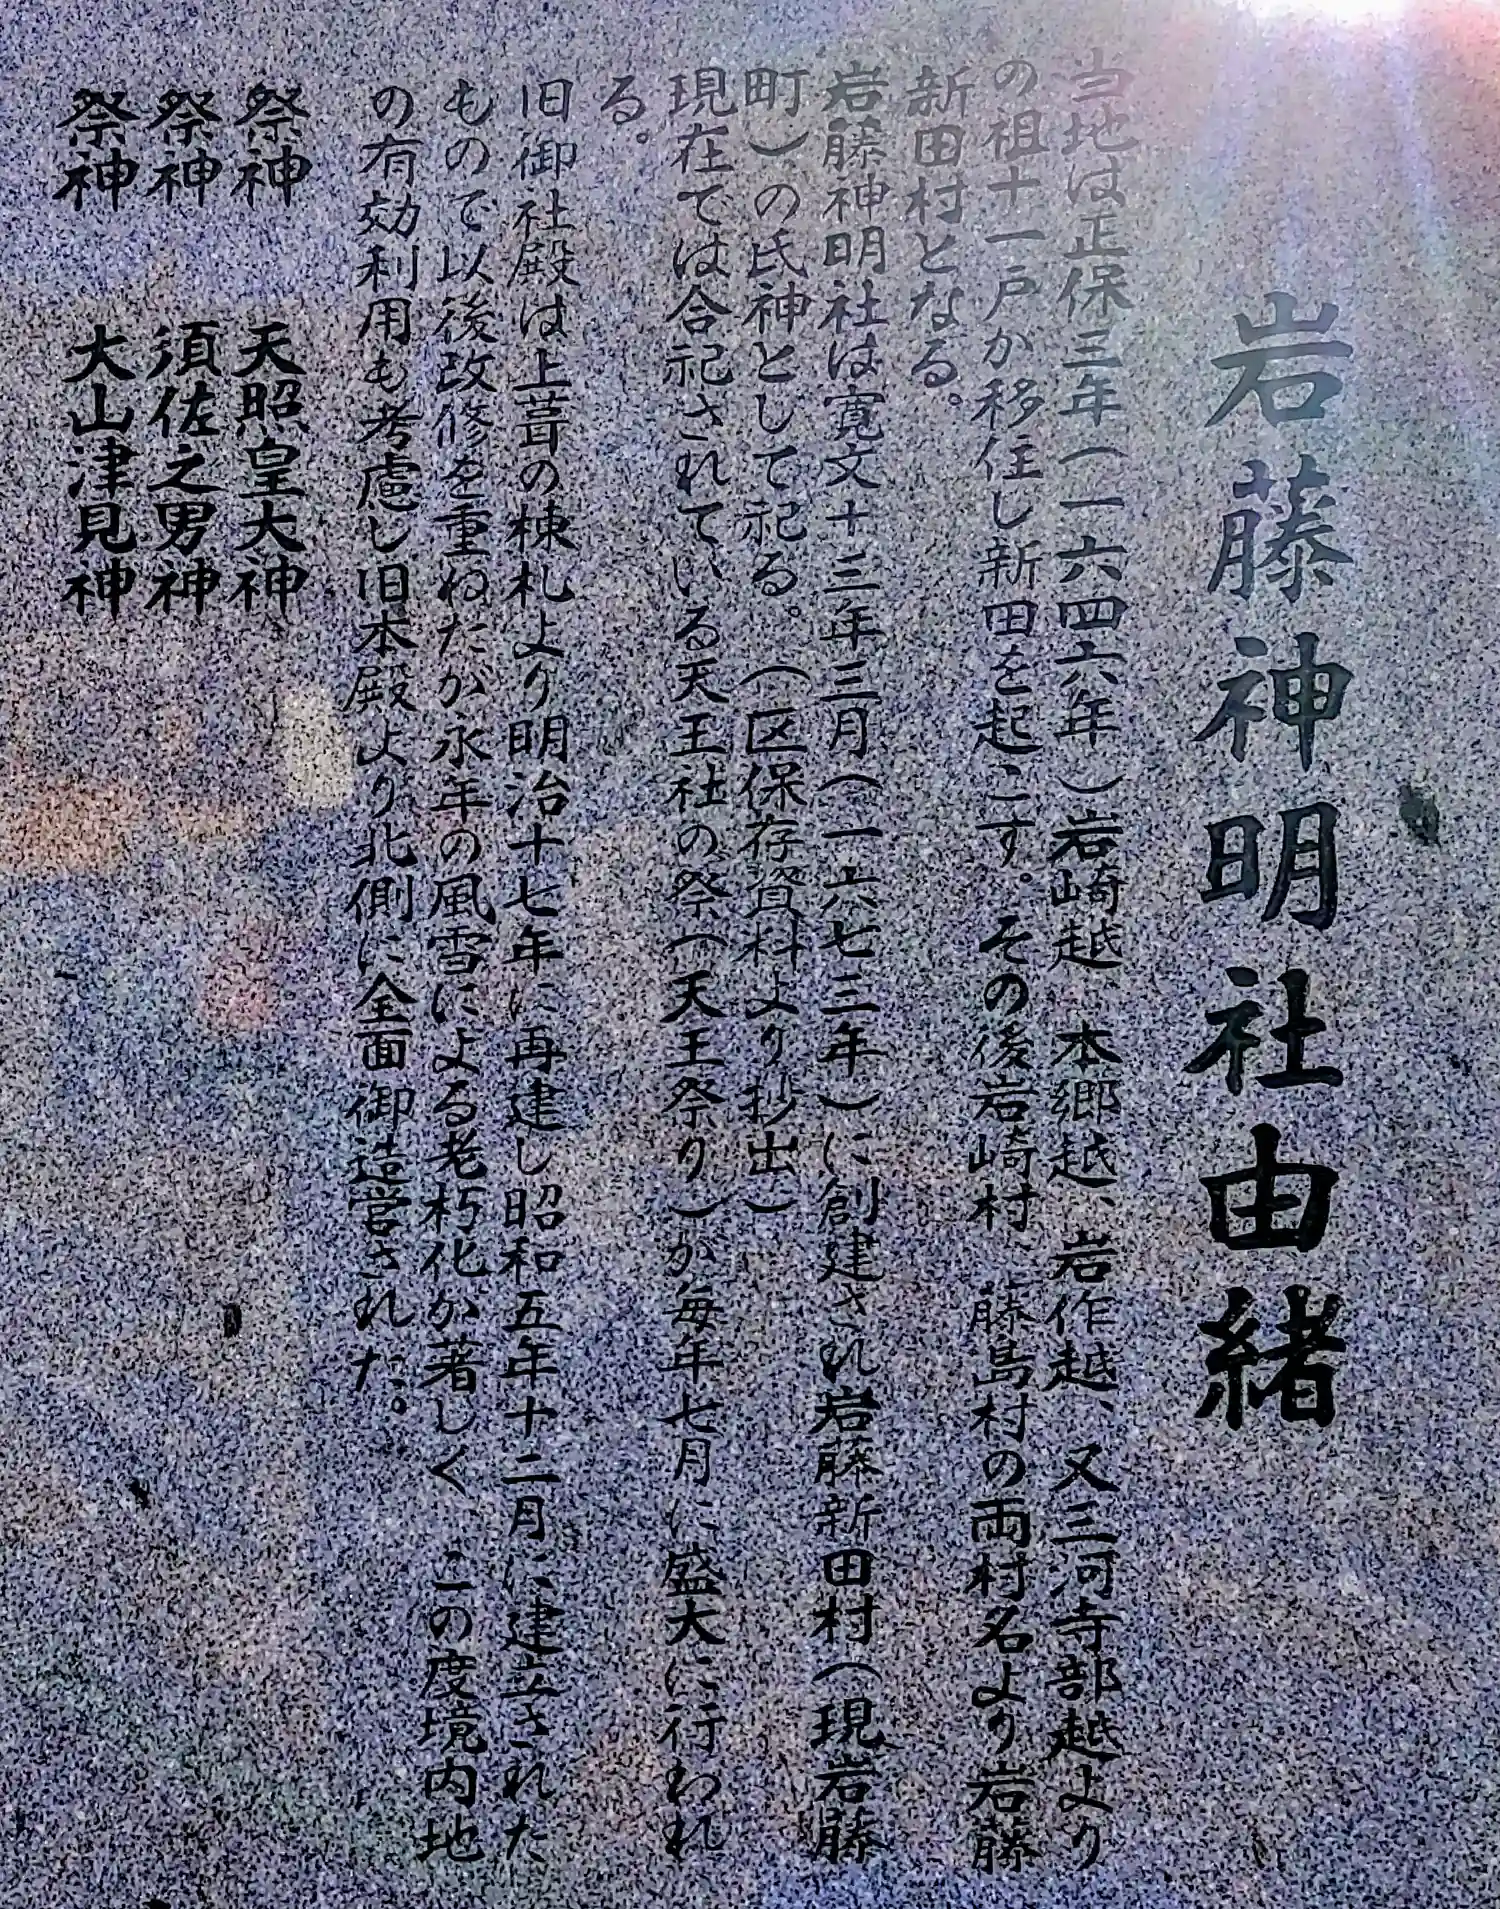 岩藤神明社由緒
当地は正保三年(一六四六年)岩崎越、本郷越、岩作越、又三河寺部越より
の祖十一戸が移住し新田を起こす。その後岩崎村、藤島村の両村名より岩藤
新田村となる。
岩藤神明社は寛文十三年三月(一六七三年)に創建され岩藤新田村(現岩藤
町)の氏神として祀る。(区保存資料より抄出)
現在では合祀されている天王社の祭(天王祭り)が毎年七月に盛大に行われ
る。
旧御社殿は上葺の棟札より明治十七年に再建し昭和五年十二月に建立された
もので以後改修を重ねたが永年の風雪による老朽化が著しく、この度境内地
の有効利用も考慮し旧本殿より北側に全面御造営された。
祭神 天照皇大神
祭神 須佐之男神
祭神 大山津見神